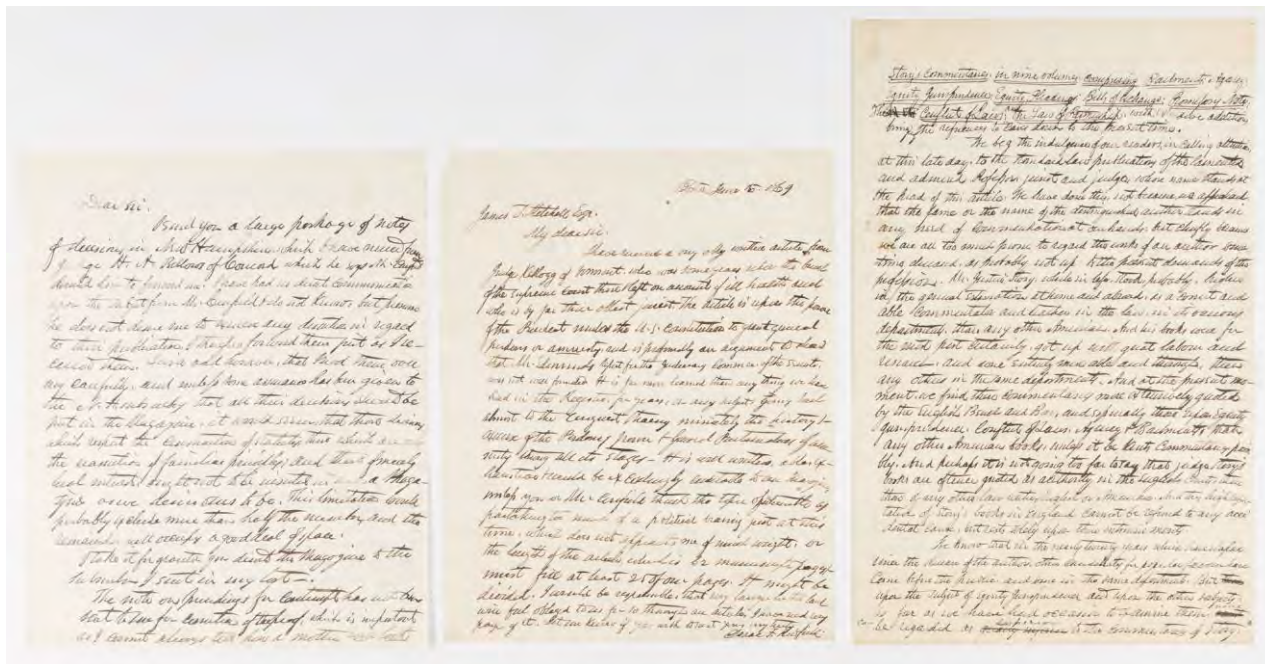 Dear Sir.
I send you a large package of notes
of decisions in N. Hampshire which I have received from
Judge H. A. Bellows of Concord which he says Mr. Canfield
desired him to forward me. I have had no direct communication
upon the subject from Mr. Canfield & do not know but
he does not desire me to any duties in regard
to their publication. I therefore forward them just as I re-
ceived them. I will add however, that I have them over
very carefully, and unless some assurance has been given to
the N. Hampshire that all their decisions should be
put in the Magazine, it would seem that those decisions
which respect the construction of statutes
the of familiar principles, and those of merely
local interest, ought not to be inserted in such a Maga-
zine as we desire ours to be. This limitation would
probably exclude more than half the number and the
remainder will occupy a good deal of space.
I take it for granted you direct the Magazine to the
I sent in my last—.
The note on proceedings for Contempt has not been
sent to me for correction of the proof, which is important
as I cannot always
Boston June 15 1869
James T. Mitchell Esq.
My dear sir.
I have received a very ably written article, from
Judge Kellogg of Vermont, who was some years upon the bench
of the supreme court there & left on account of ill health and
who is by far their ablest jurist. The article is upon the power
of the President under the U.S. Constitution to grant general
pardons or amnesty, and is professedly an argument to show
that Mr. report for the Judiciary Committee of the Senate,
was not well founded. It is far more learned than any thing we have
had in the Register, for years, or any
almost to the Conquest & tracing minutely the history &
course of the Pardoning power & of general Proclamations of am-
nesty through all its stages— It is well written, &Clear &
would be extremely creditable to our Magazine,
unless you or Mr. Canfield thinks the topic objectionable as
partaking too much of a political bearing just at this
time, which does not impress me of much weight; or
the length of the article, which is 82 manuscript pages &
must fill at least 25 of our pages. It might be
divided. I would be responsible, that very large
will feel obliged to us for so thorough an article. I have read every
page of it. Let me know if you wish to
Isaac F. Redfield
Story's Commentaries, in nine volumes, comprising Bailments, Agency,
Equity Jurisprudence, Equity Pleadings, Bills of Exchange, Promissory Notes,
Conflict of Laws, the Law of Partnership, with additions
bring the references to Cases down to the present time.
We beg the indulgence of our readers, in calling attention
at this late day, to the standard law publications of the lamented
and admired Professor, jurist and judge, whose name stands at
the head of this article. We have done this, not because we apprehend
that the fame or the name of the distinguished author stands in
any need of Commendation at our hands, but chiefly because
we are all too much prone to regard the works of an author some
time deceased, as probably not up to the present demands of the
profession. Mr. Justice Story, while in life, stood, probably, higher
in the general estimation at home and abroad, as a Jurist and
able Commentator and teacher in the law, in its various
departments, than any other American. And his books were for
the most part certainly, got up with great labour and
research, and some entirely and thorough, than
any others in the same department. And at the present mo-
ment, we find these Commentaries more extensively quoted
by the English Bench and Bar, and especially those upon Equity
Jurisprudence, Conflict of Laws, Agency & Bailments than
any other American books, unless it be Kents Commentary possi-
bly. And perhaps it is not going too far to say that judge Story's
books are oftener quoted as authority in the English Courts, than
those of any other law writer, English or American. And this high
of Story's books in England cannot be referred to any acci-
dental cause, but rests solely upon their intrinsic merit.
We know that in the nearly twenty years which have elapsed
since the decease of the author, other books have
come before the public, and some in the same department. But
upon the subject of Equity Jurisprudence and upon the other subjects
so far as we have had occasion to examine them
be regarded as to the Commentaries of Story.